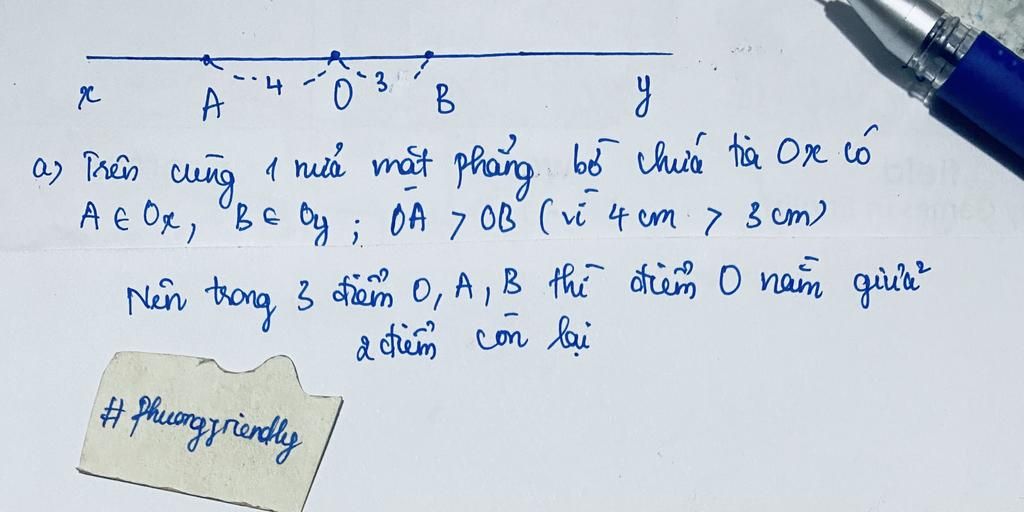 4 3
x A O B y
a) Trên cùng 1 nửa mặt phẳng bờ chứa tia Ox có
A ∈ Ox, B ∈ Oy ; OA > OB (vì 4 cm > 3 cm)
Nên trong 3 điểm O, A, B thì điểm O nằm giữa
2 điểm còn lại
# phuongfriendly